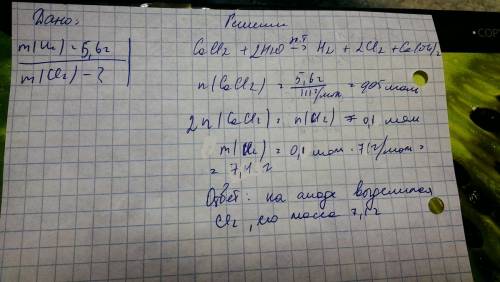 Дано:
m(H₂) = 5,6г
m(Cl₂) - ?
Решение
CaCl2 + 2H2O п.т → H2 + 2Cl2 + Ca(OH)2
n(CaCl2) = 5,6г / 111г/моль = 0,05 моль
2n(CaCl2) = n(Cl2) = 0,1 моль
m(Cl2) = 0,1 моль · 71г/моль =
= 7,1 г
Ответ: на аноде выделился
Cl2, его масса 7,1г